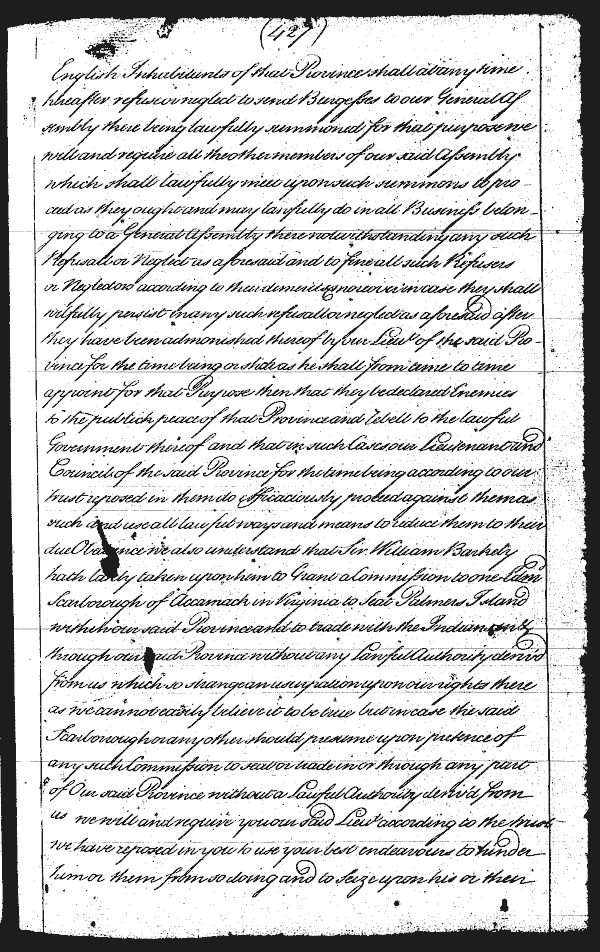 (427)
English Inhabitents of that Province shall at any time
hereafter refuse or neglect to send Burgesses to our General As
sembly there being lawfully summoned for that purpose we
will and require all the other members of our said Assembly
which shall lawfully meet upon such summons to pro-
ceed as they ought and may lawfully do in all Business belon-
ging to a General Assembly there notwithstanding any such
Refusall or Neglect as aforesaid and to fine all such Refusers
or Neglectors according to their demeritts in case they shall
wilfully persist in any such refusall or neglect as aforesaid after
they have been admonished thereof by our Lieut of the said Pro-
vince for the time being or such as he shall from time to time
appoint for that Purpose then that they be declared Enemies
to the publick peace of that Province and rebell to the lawful
Government thereof and that in such Cases our Lieutenant and
Council of the said Province for the time being according to our
trust reposed in them do efficaciously proceed against them as
such and use all lawful ways and means to reduce them to their
due Obedience we also understand that Sir William Barkely
hath lately taken upon him to Grant a Commission to one Edm
Scarborough of Accamack in Virginia to Seat Palmers Island
within our said Province and to trade with the Indians in &
through our said Province without any Lawful Authority deriv'd
from us which so strange an usurpation upon our rights there
as we cannot easily believe it to be true but in case the said
Scarborough or any other should presume upon pretence of
any such Commission to seat or trade in or through any part
of Our said Province without a Lawful Authority deriv'd from
us we will and require you our said Lieut according to the trust
we have reposed in you to use your best endeavours to hinder
him or them from so doing and to Seize upon his or their